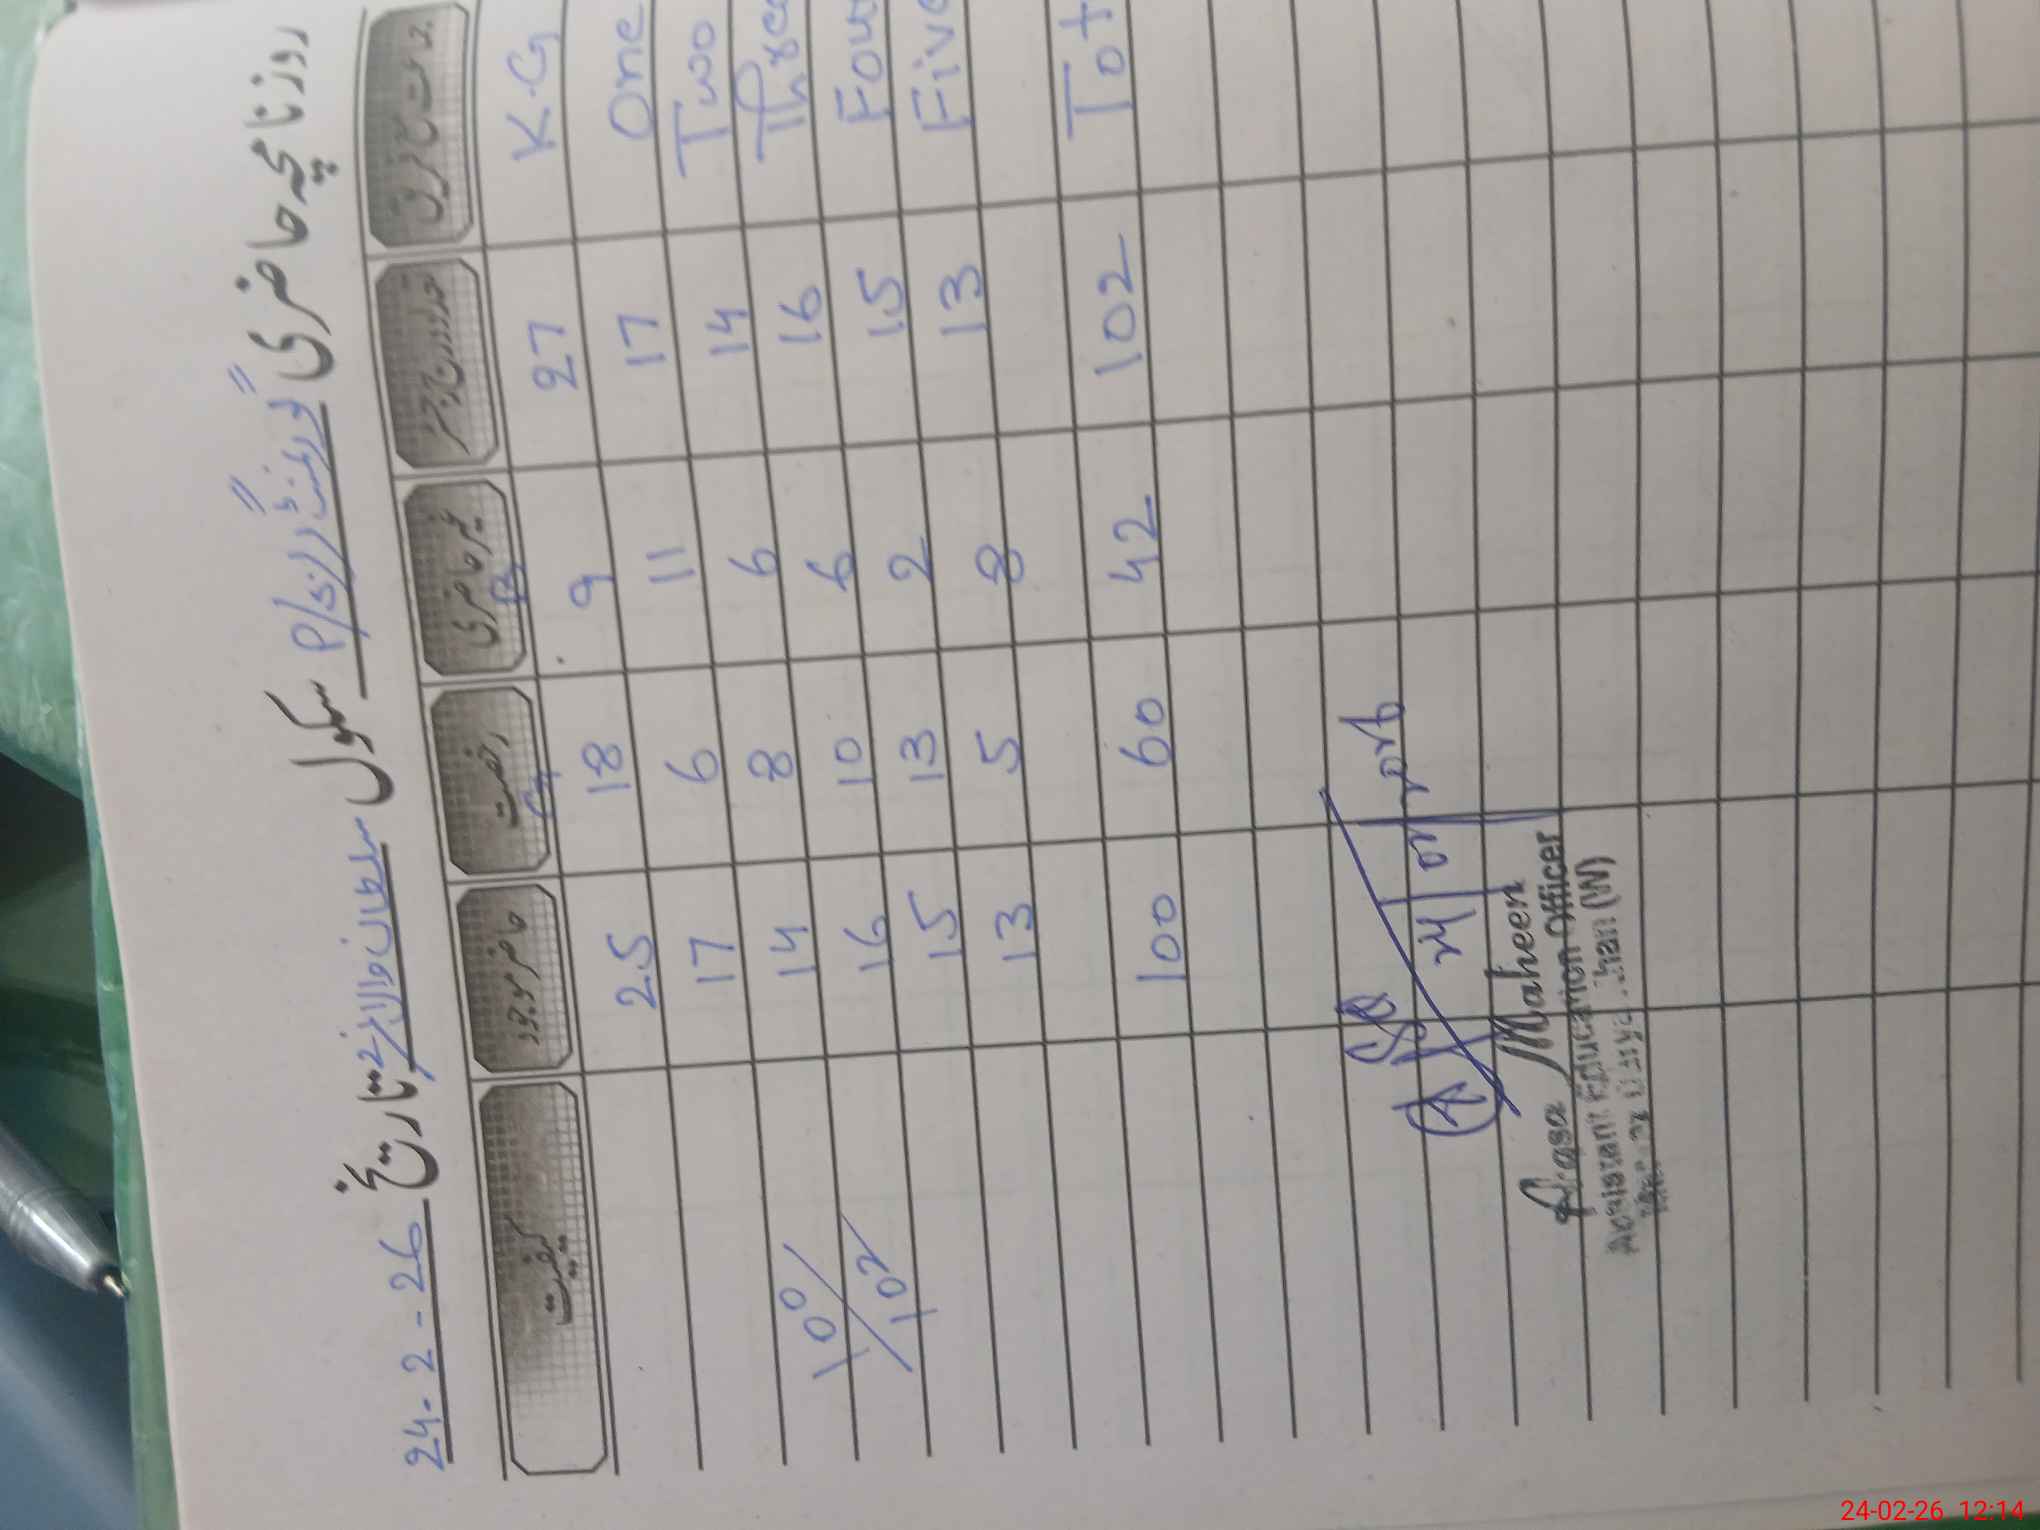 روزنامچہ حاضری گورنمنٹ گرلز P/S سکول سلطان والا 2 تاریخ 24-2-26
جماعت مع فریق تعداد مندرجہ رجسٹر غیر حاضری رخصت حاضر موجود کیفیت
K.G 27 9 18 25
One 17 11 6 17
Two 14 6 8 14
Three 16 6 10 16 100/102
Four 15 2 13 15
Five 13 8 5 13
Tot 102 42 60 100
24/02/2026
Maheen
Assistant Education Officer
(W)
24-02-26 12:14